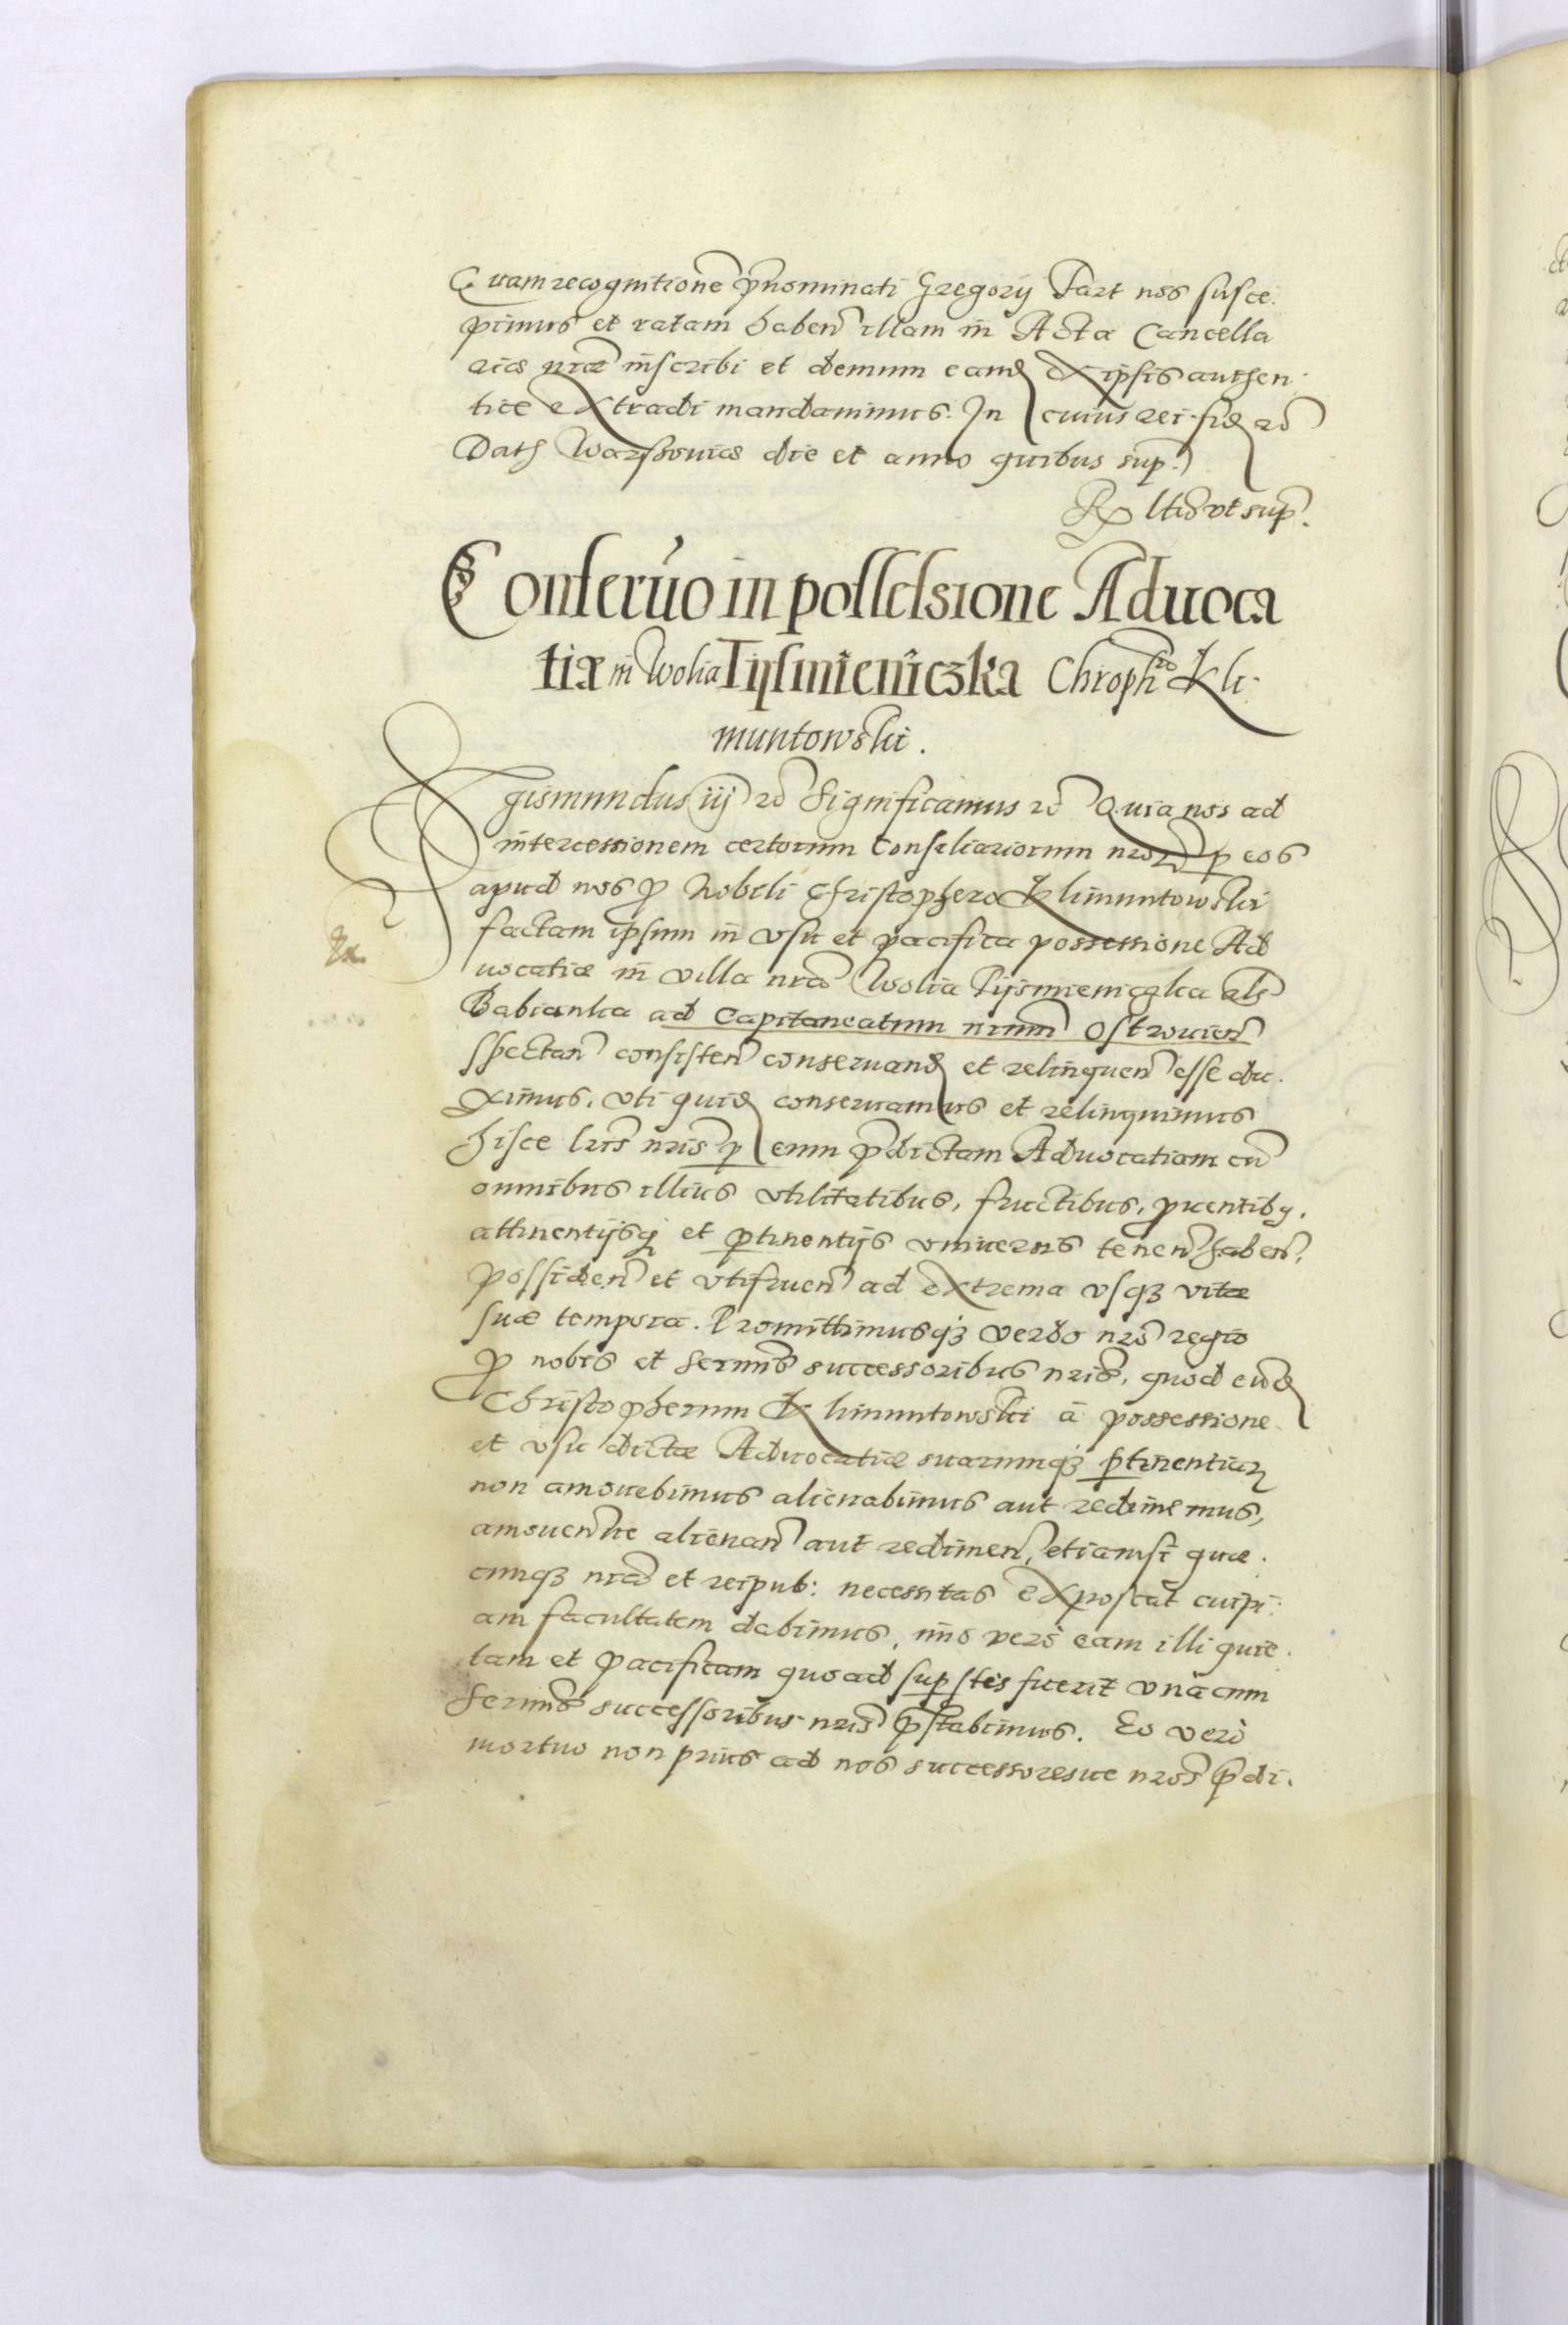 Quam recognitionē p̄nominati Gregorij Part nos susce.
pimus et ratam habeñ illam in Acta Cancella
riæ nr̄æ inscribi et demum eamd̨ ex ipsis authen.
tice extradi mandauimus. In cuius rei fid̨ rc̄
Dat̨ Warssouiæ die et anno quibus sup:
ut sup̄.
Conseruo in possessione Aduoca
tiæ in Wolia Tijsmieniczka Chroph̄ro Kli.
muntowski.
Sigismundus iij rc̄ Significamus rc̄ Quia nos ad
intercessionem certorum Consiliariorum nror̄ ꝑ eos
apud nos ꝓ Nobili Christophero Klimuntowski
factam ipsum in vsu et pacifica possessione Ad
uocatiæ in villa nrā Wolia Tijsmieniczka als̄
Babianka ad Capitaneatum nrum̄ Ostrouieñ
spectañ consisteñ conseruand̨ et relinqueñ esse du.
ximus. vti quid̨ conseruamus et relinquimus
hisce lris̄ nris̄ ꝑ eum p̄dictam Aduocatiam cū
omnibus illius vtilitatibus, fructibus, ꝓuentibꝯ.
attinentijsq̨ et ꝑtinentijs vniuersis teneñ habeñ,
possideñ et vtifrueñ ad extrema vsqꝫ vitæ
suæ tempora. Promittimusqꝫ verbo nrō regio
ꝓ nobis et sermis̄ successoribus nris̄, quod eūd̨
Christopherum Klimuntowski à possessione
et vsu dictæ Aduocatiæ suarumqꝫ ꝑtinentiarꝝ
non amouebimus alienabimus aut redimemus,
amoueñue alienañ aut redimeñ, etiamsi quæ.
cunqꝫ nrā et reipub: necessitas exposcat cuipi.
am facultatem dabimus, imo verò eam illi quie.
tam et pacificam quoad suꝑstes fuerit vnà cum
sermis̄ successoribus nris̄ p̄stabimus. Eo verò
mortuo non prius ad nos successoresue nros̄ p̄di.